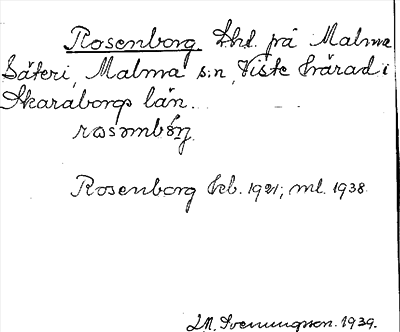 Rosenborg. Lht. på Malma
Säteri, Malma s:n, Viste härad i
Skaraborgs län.
rosombörj.
Rosenborg kb. 1921; ml. 1938.
J.M. Svenungsson. 1939.